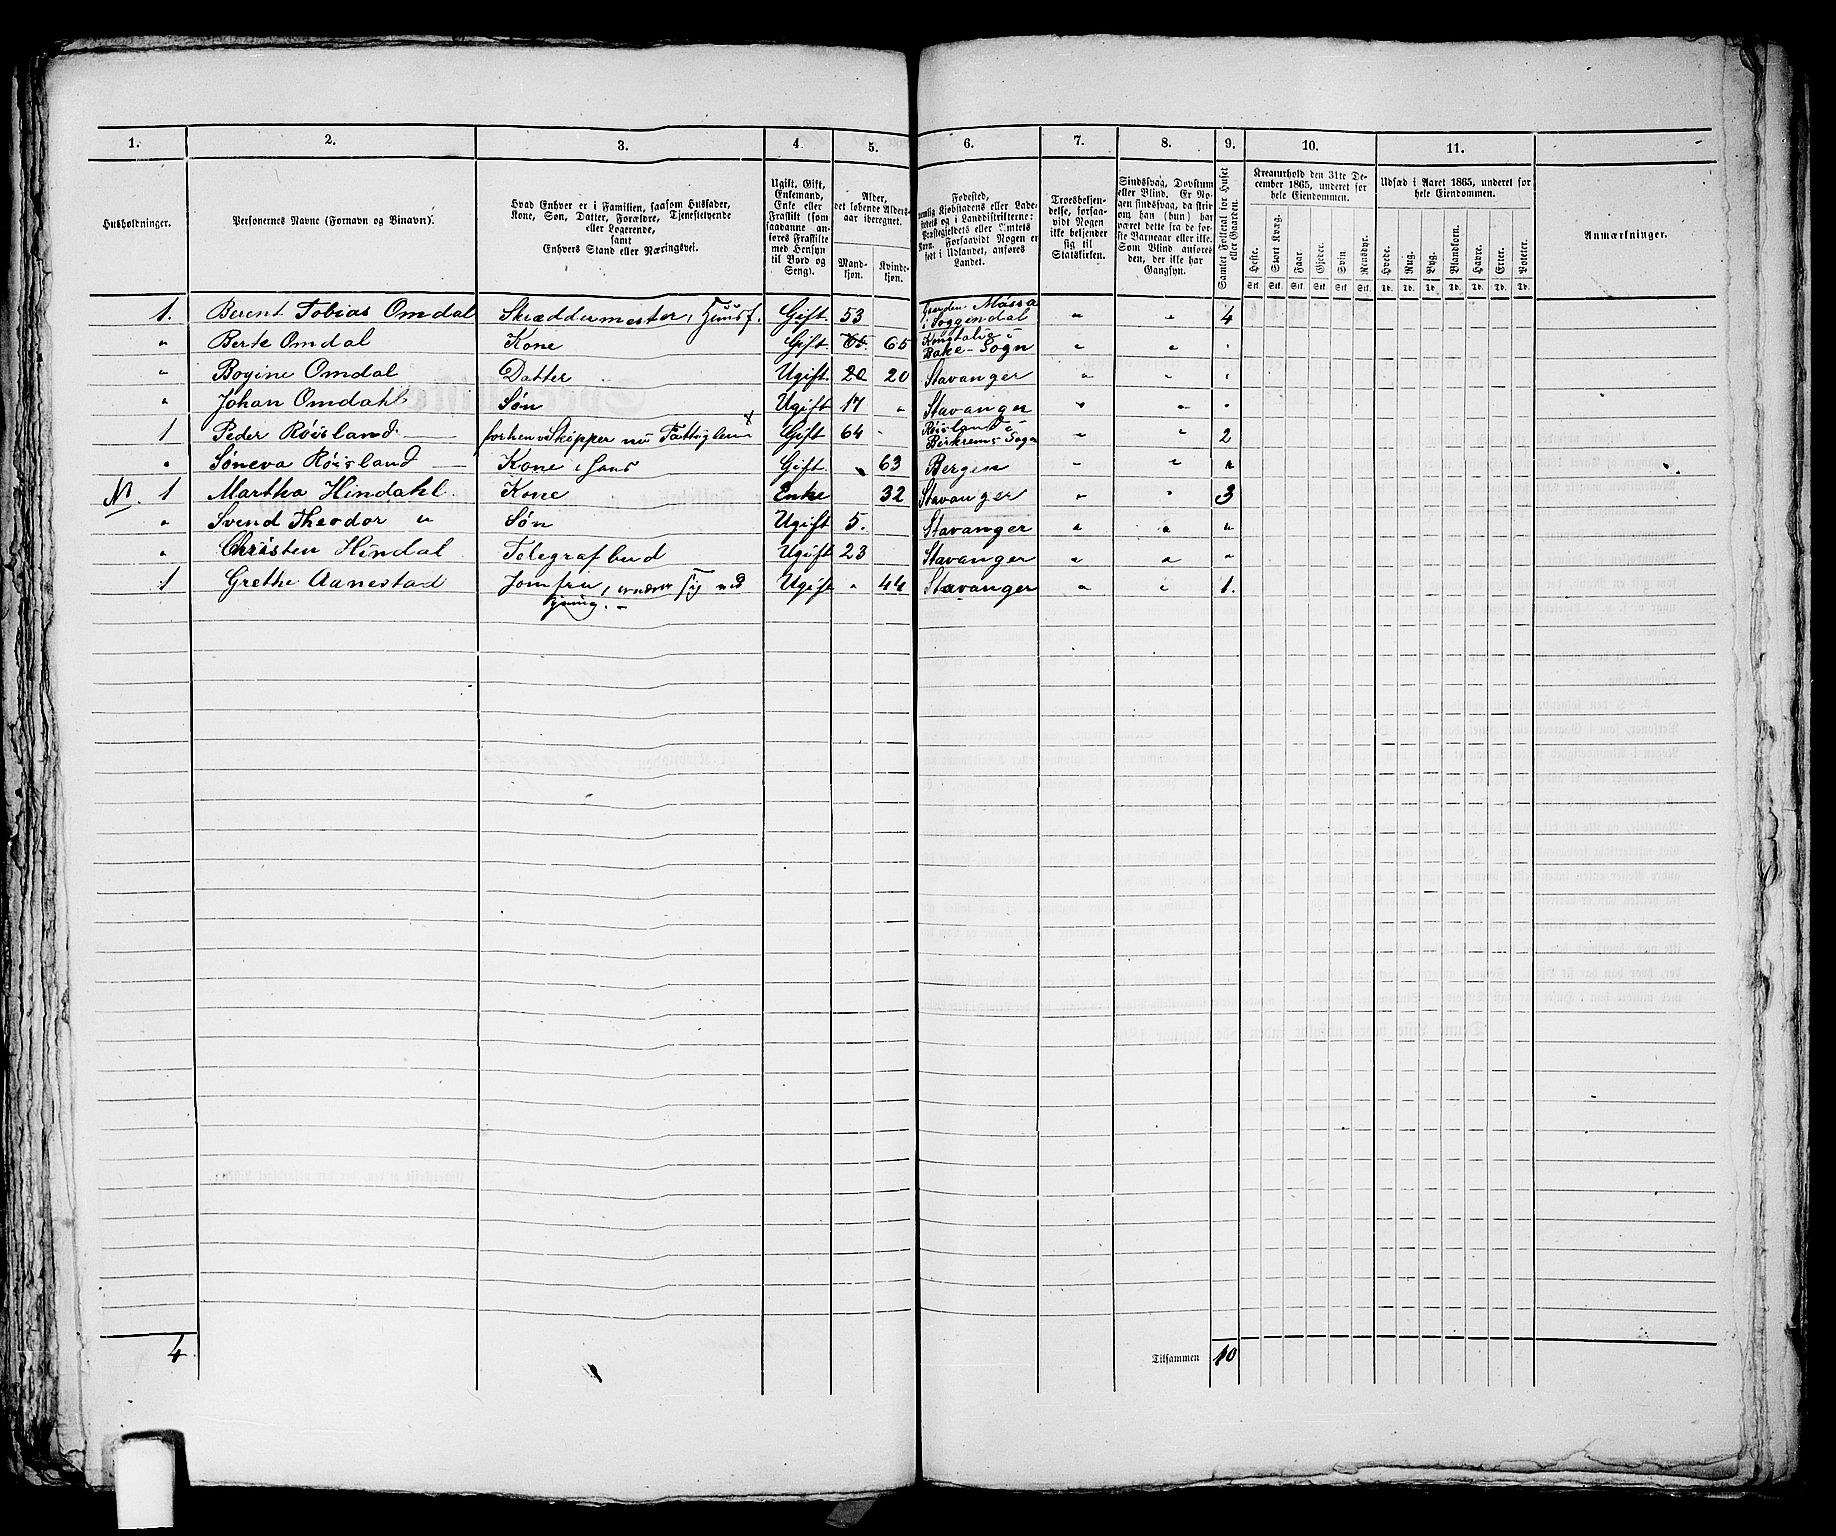 1. 2. 3. 4. 5. 6. 7. 8. 9. 10. 11.
Husholdninger.
Personernes Navne (Fornavn og Binavn).
Hvad Enhver er i Familien, saasom Husfader,
Kone, Søn, Datter, Forældre, Tjenestetyende
eller Logerende,
samt
Enhvers Stand eller Næringsvei.
Ugift, Gift,
Enkemand,
Enke eller
Fraskilt (som
saadanne an-
føres Fraskilte
med Hensyn
til Bord og
Seng).
Alder,
det løbende Alders-
aar iberegnet.
Mand-
kjøn.
Kvinde-
kjøn.
Fødested,
nemlig Kjøbstadens eller Lade-
stedets og i Landdistrikterne:
Præstegjeldets eller Amtets
Navn. Forsaavidt Nogen er
født i Udlandet, anføres
Landet.
Troesbekjen-
delse, forsaa-
vidt Nogen
ikke bekjender
sig til
Statskirken.
Sindssvag, Døvstum
eller Blind. Er No-
gen sindssvag, da an-
føres om han (hun) har
været dette fra de før-
ste Barneaar eller ikke.
Som Blind anføres
den, der ikke har
Gangsyn.
Samlet Folketal for Huset
eller Gaarden.
Kreaturhold den 31te De-
cember 1865, anføret for
hele Eiendommen.
Heste. Stort Kvæg. Faar. Gjeder. Svin Rensdyr.
Stk. Stk. Stk. Stk. Stk. Stk.
Udsæd i Aaret 1865, anføret for
hele Eiendommen.
Hvede. Rug. Byg. Blandkorn. Havre. Erter. Poteter.
Td. Td. Td. Td. Td. Td. Td.
Anmærkninger.
1. Berent Tobias Omdal Skræddermester, Huusf. Gift. 53 Mossa i Soggendal " " 4
" Berte Omdal Kone Gift 65. 65 i Bake-Sogn " " "
" Bogine Omdal Datter Ugift. 20 20 Stavanger " " "
" Johan Omdahl Søn Ugift 17 " Stavanger " " "
1 Peder Röisland forhenv Skipper nu Fattiglem Gift 64 - Röisland i Birkrems-Sogn " " 2
" Söneva Röisland Kone i Huus Gift. " 63 Bergen " " "
N. 1 Martha Hindahl. Kone Enke 32 Stavanger " " 3
" Svend Theodor " Søn Ugift 5. Stavanger " " "
" Christen Hindal Telegrafbud Ugift 23 Stavanger " " "
1 Grethe Aanestad Jomfru, ernærer sig ved Ugift " 44 Stavanger " " 1.
syning.
4
Tilsammen 10